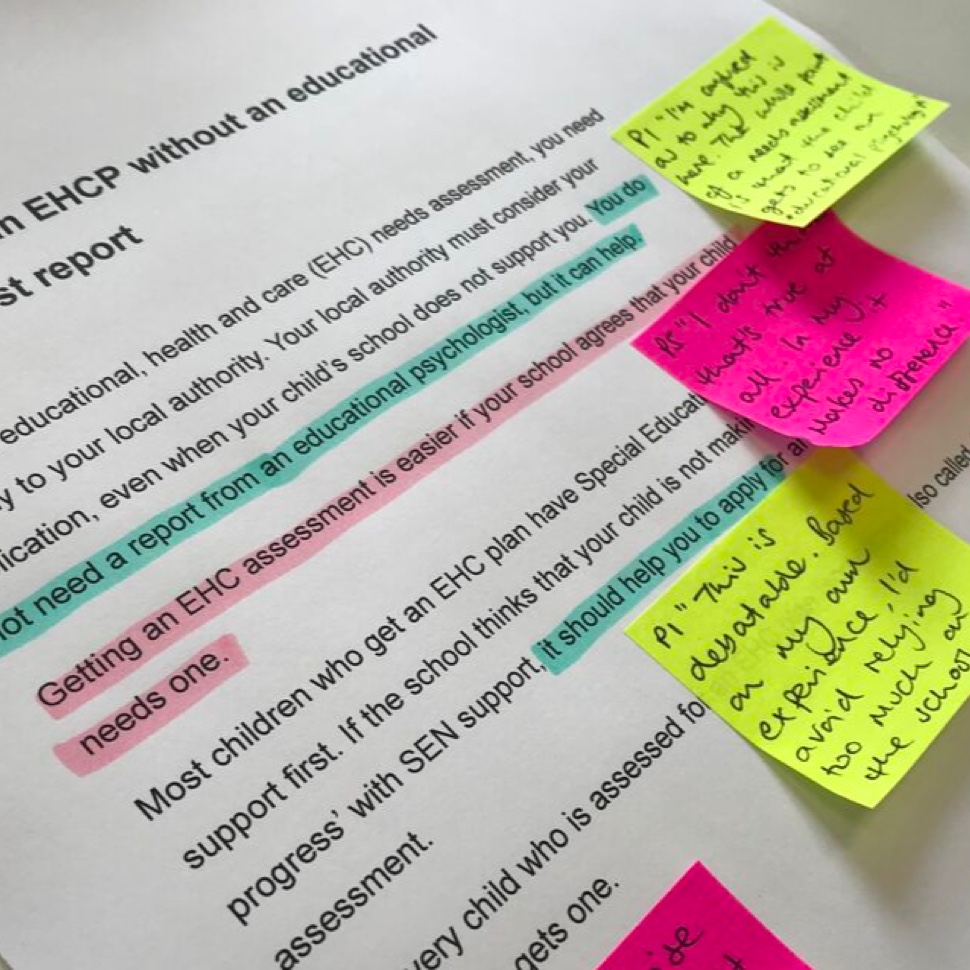 n EHCP without an educational
st report
educational, health and care (EHC) needs assessment, you need
y to your local authority. Your local authority must consider your
lication, even when your child's school does not support you. You do
not need a report from an educational psychologist, but it can help.
Getting an EHC assessment is easier if your school agrees that your child
needs one.
Most children who get an EHC plan have Special Educati
support first. If the school thinks that your child is not maki
progress' with SEN support, it should help you to apply for a
assessment.
very child who is assessed fo
gets one.
lso called
P1 "I'm confused
as to why this is
here. The whole point
of a needs assessment
is that the child
gets to see an
educational psychologist
P5 "I don't think
that's true at
all. In my
experience it
makes no
difference"
P1 "This is
debatable. Based
on my own
experience, I'd
avoid relying
too much on
the school